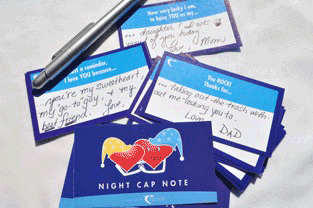 How very lucky I am,
to have YOU as my...
daughter! I am so
of you today
Love! Mom
Just a reminder,
I LOVE YOU because...
you're my sweetheart,
my go-to guy & my
best friend. Love,
You ROCK!
Thanks for...
... taking out the trash with-
out me asking you to.
Love DAD
NIGHT CAP NOTE